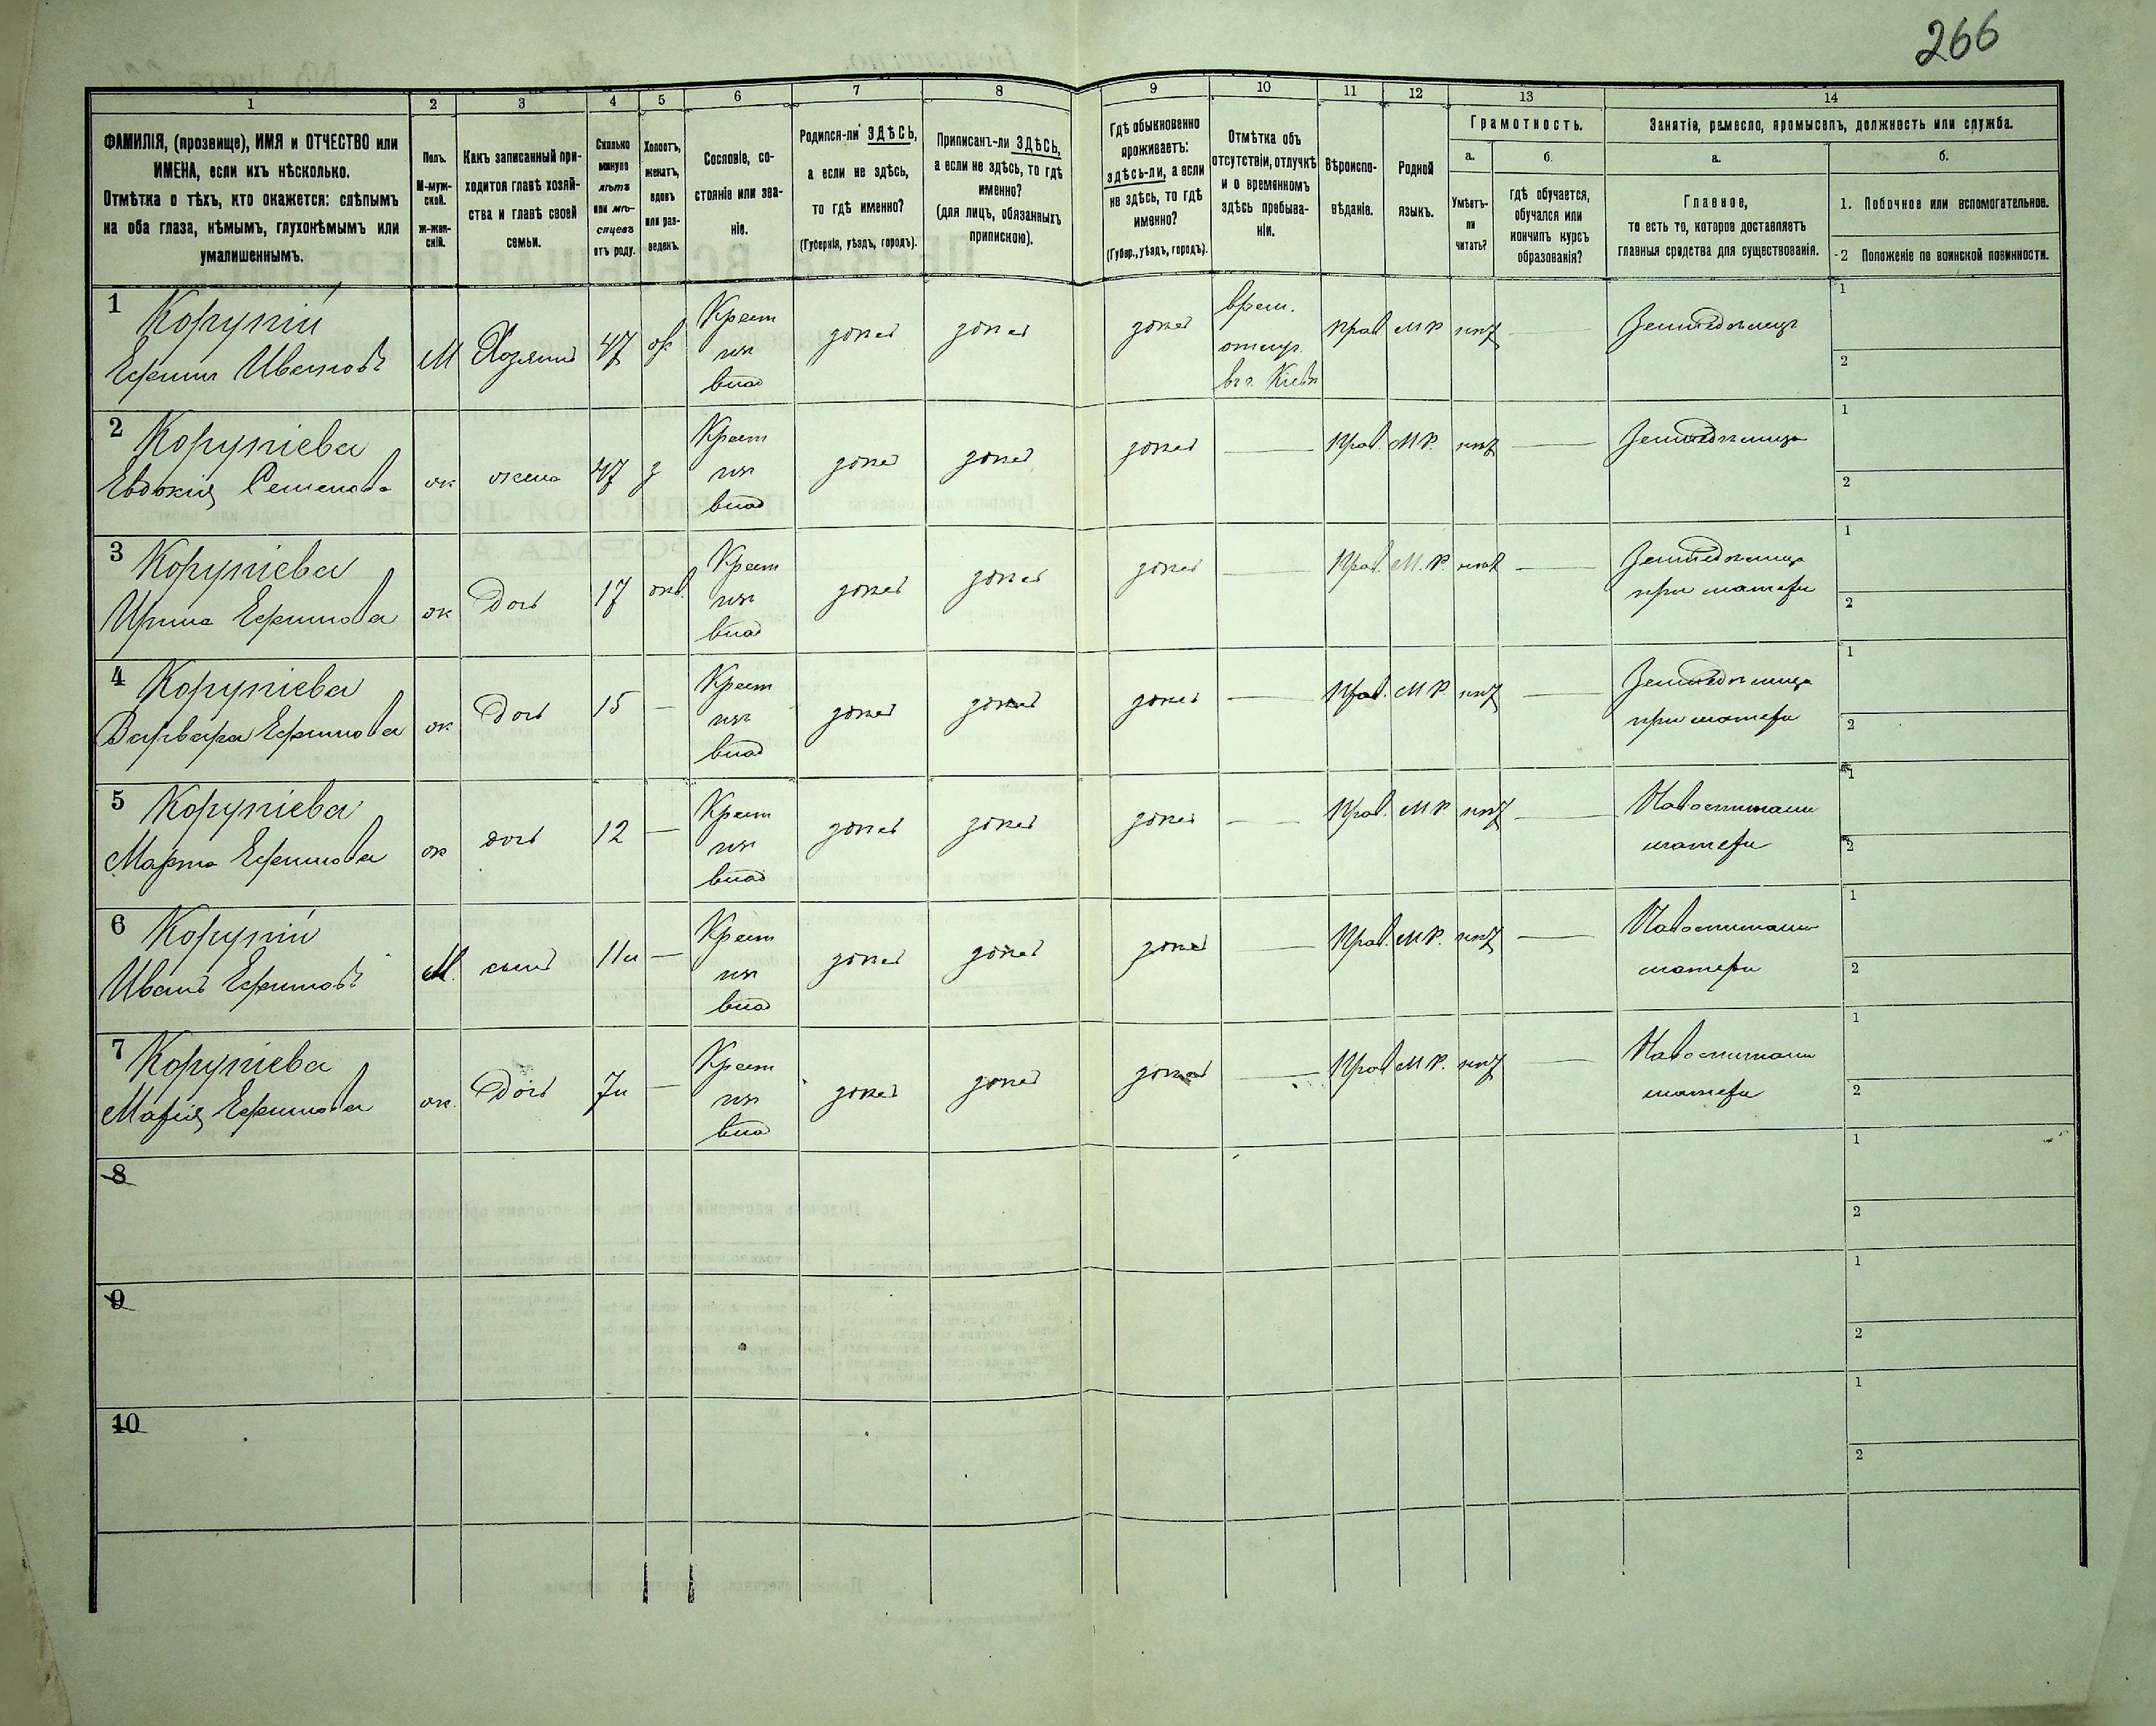 266
1 2 3 4 5 6 7 8 9 10 11 12 13 14
ФАМИЛІЯ, (прозвище), ИМЯ и ОТЧЕСТВО или
ИМЕНА, если ихъ нѣсколько.
Отмѣтка о тѣхъ, кто окажется: слѣпымъ
на оба глаза, нѣмымъ, глухонѣмымъ или
умалишеннымъ.
Полъ.
М-муж-
ской.
Ж-жен-
скій.
Какъ записанный при-
ходится главѣ хозяй-
ства и главѣ своей
семьи.
Сколько
минуло
лѣтъ
или мѣ-
сяцевъ
отъ роду.
Холостъ,
женатъ,
вдовъ
или раз-
веденъ.
Сословіе, со-
стояніе или зва-
ніе.
Родился-ли ЗДѢСЬ,
а если не здѣсь,
то гдѣ именно?
(Губернія, уѣздъ, городъ).
Приписанъ-ли ЗДѢСЬ,
а если не здѣсь, то гдѣ
именно?
(для лицъ, обязанныхъ
припискою).
Гдѣ обыкновенно
проживаетъ:
здѣсь-ли, а если
не здѣсь, то гдѣ
именно?
(Губер., уѣздъ, городъ).
Отмѣтка объ
отсутствіи, отлучкѣ
и о временномъ
здѣсь пребыва-
ніи.
Вѣроиспо-
вѣданіе.
Родной
языкъ.
Грамотность.
а.
Умѣетъ-
ли
читать?
б.
гдѣ обучается,
обучался или
кончилъ курсъ
образованія?
Занятіе, ремесло, промыселъ, должность или служба.
а.
Главное,
то есть то, которое доставляетъ
главныя средства для существованія.
б.
1. Побочное или вспомогательное.
2 Положеніе по воинской повинности.
1 Корупій
Ефимъ Ивановъ
М Хозяинъ 47 ж
Крест
из
влад
здѣсь здѣсь здѣсь
врем.
отлуч.
в г. Кіевѣ
Прав М Р нѣт —
Земледѣлецъ
1
2
2 Корупіева
Евдокія Семенова
ж жена 47 з
Крест
из
влад
здѣсь здѣсь здѣсь — Прав. М Р. нѣт —
Земледѣлица
1
2
3 Корупіева
Ирина Ефимова
ж Дочь 17
Крест
из
влад
здѣсь здѣсь здѣсь — Прав. М. Р. нѣт —
Земледѣлица
при матери
1
2
4 Корупіева
Варвара Ефимова
ж Дочь 15 —
Крест
из
влад
здѣсь здѣсь здѣсь — Прав. М Р. нѣт —
Земледѣлица
при матери
1
2
5 Корупіева
Марта Ефимова
ж дочь 12 —
Крест
из
влад
здѣсь здѣсь здѣсь — Прав. М Р нѣт —
матери
1
2
6 Корупій
Иванъ Ефимовъ
М. сынъ 11 л —
Крест
из
влад
здѣсь здѣсь здѣсь — Прав. М Р. нѣт —
матери
1
2
7 Корупіева
Марія Ефимова
ж. Дочь 7 л —
Крест
из
влад
здѣсь здѣсь здѣсь — Прав М Р. нѣт —
матери
1
2
8
1
2
9
1
2
10
1
2